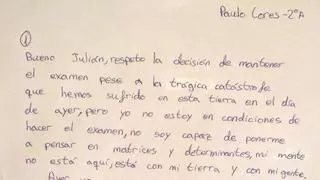 Paulo Cores-2ºA
1
Bueno Julián, respeto la decisión de mantener
el examen pese a la trágica catástrofe
que hemos sufrido en esta tierra en el día
de ayer, pero yo no estoy en condiciones de
hacer el examen, no soy capaz de ponerme
a pensar en matrices y determinantes, mi mente
no está aquí, está con mi tierra y con mi gente.
Ayer